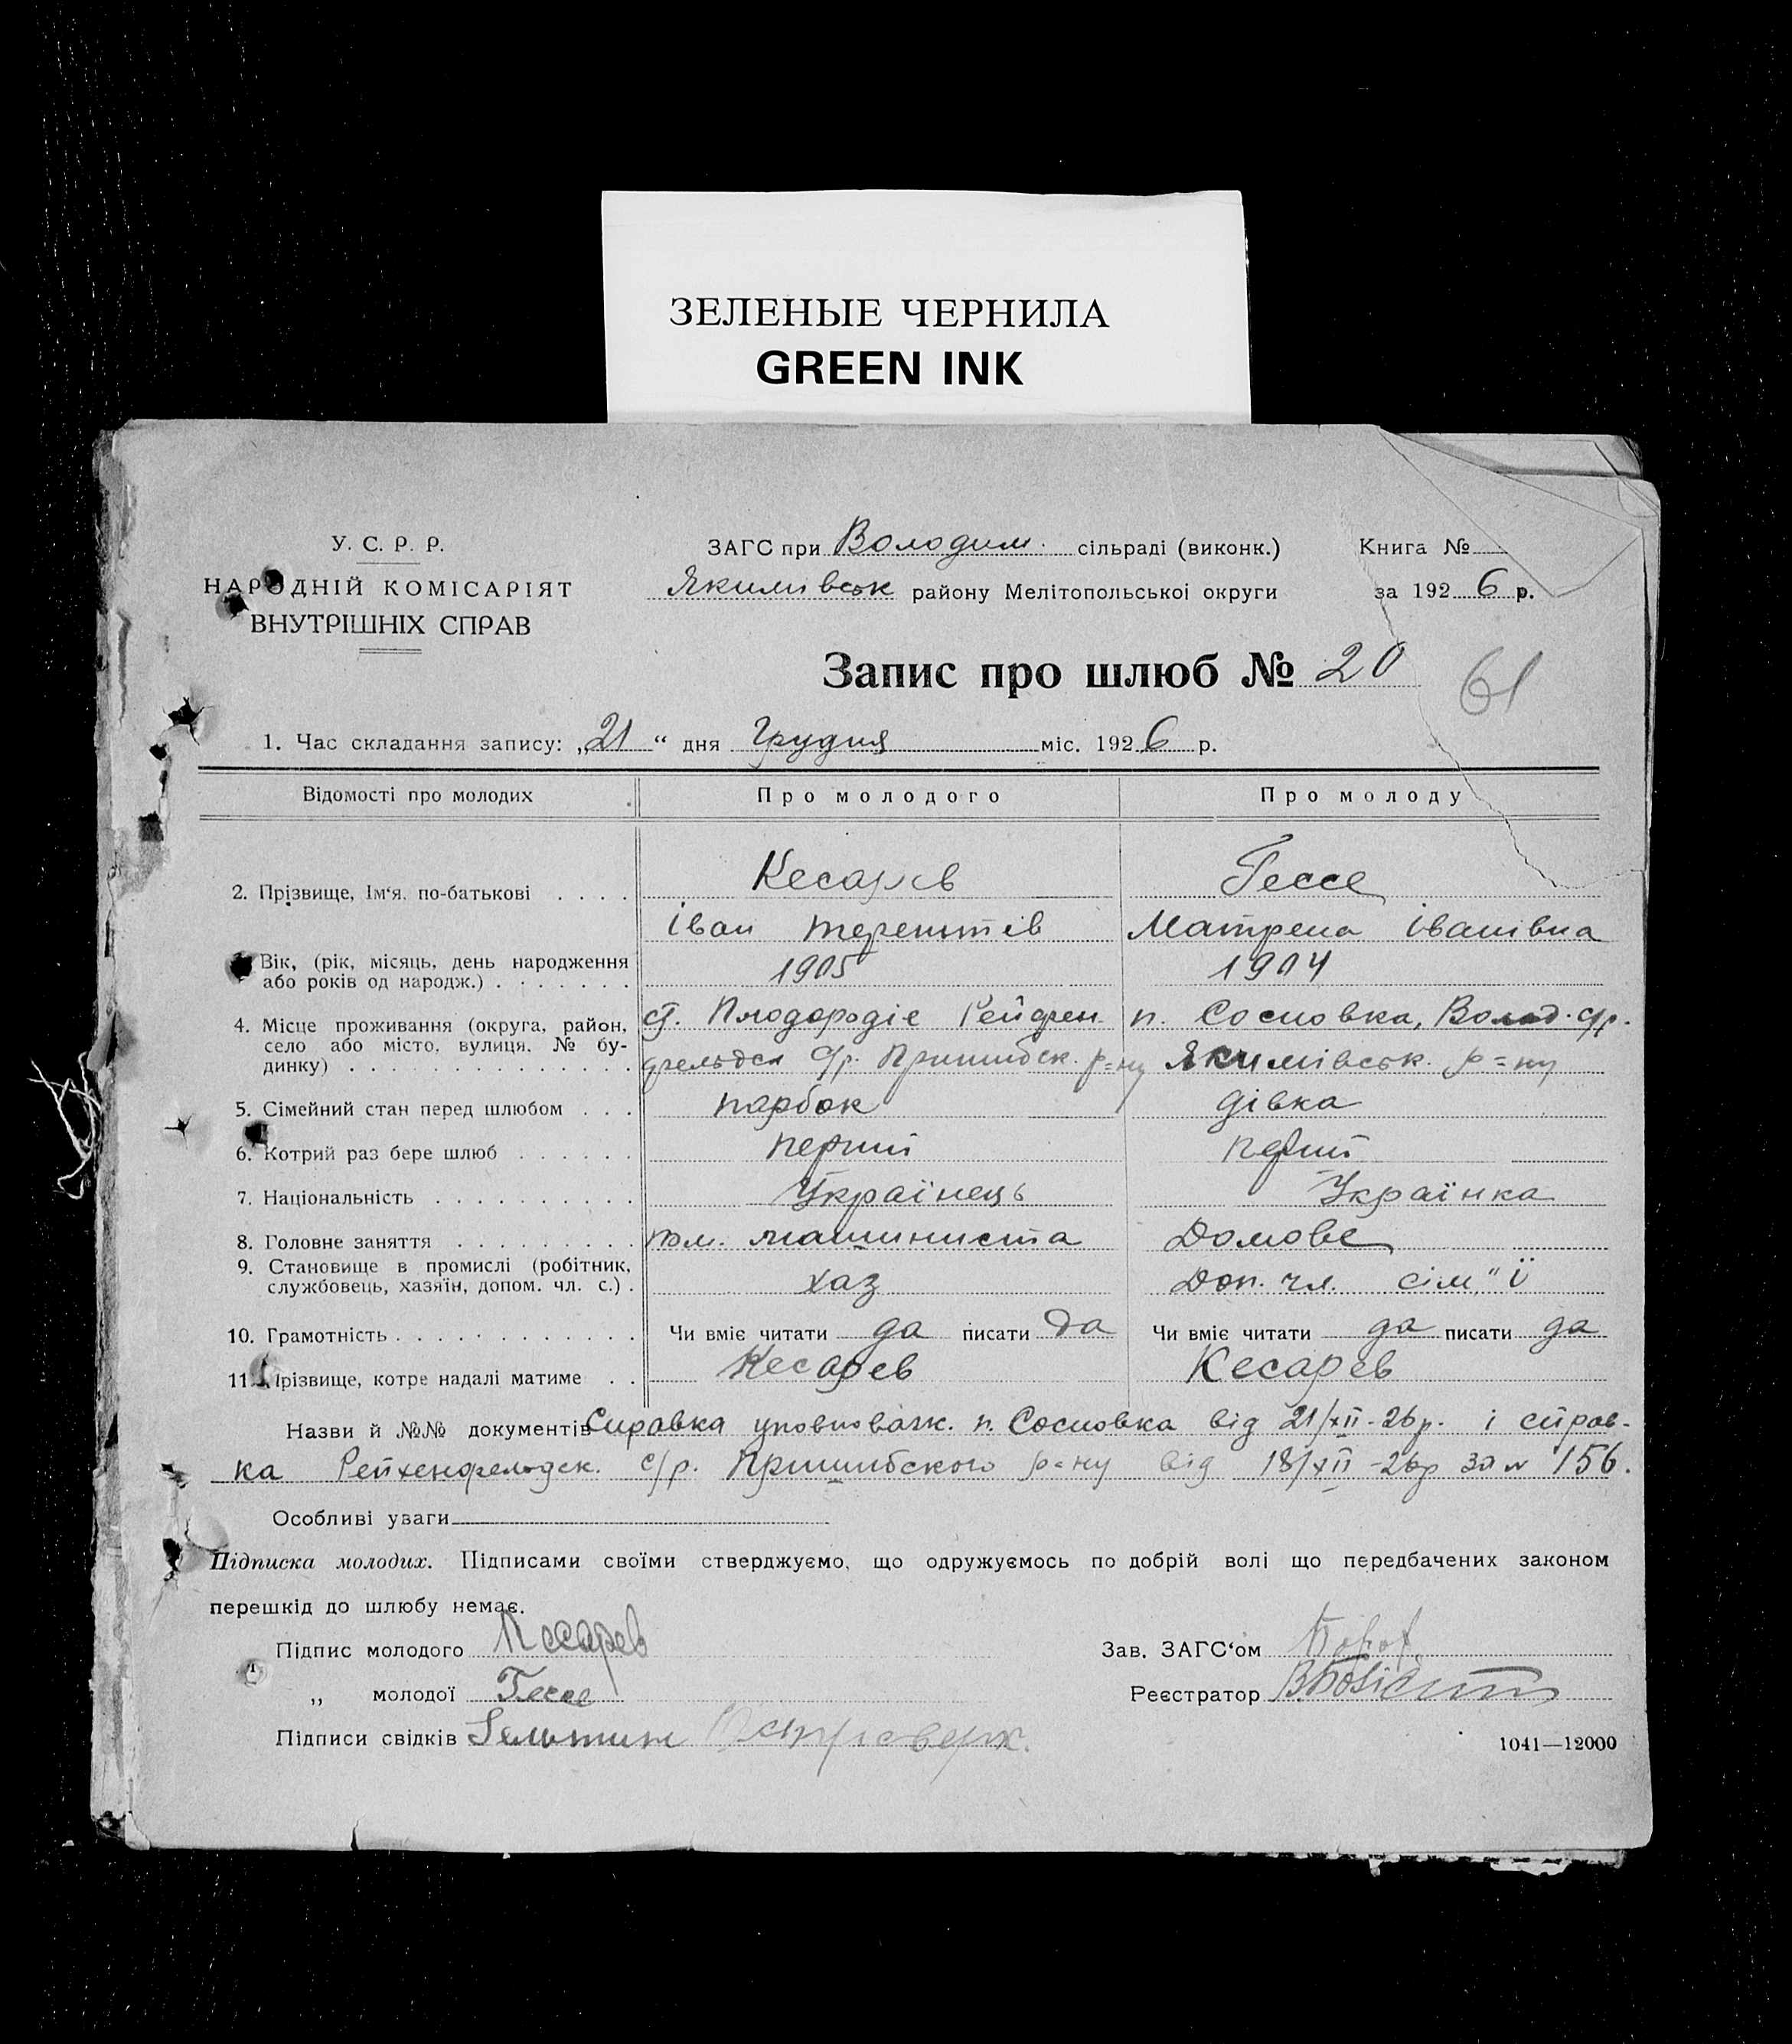 ЗЕЛЕНЫЕ ЧЕРНИЛА
GREEN INK
У. С. Р. Р.
НАРОДНІЙ КОМІСАРІЯТ
ВНУТРІШНІХ СПРАВ
ЗАГС при Володим. сільраді (виконк.)
Якимівськ району Мелітопольської округи
Книга №
за 1926 р.
Запис про шлюб № 20
61
1. Час складання запису: „21“ дня Грудня міс. 1926 р.
Відомості про молодих Про молодого Про молоду
2. Прізвище, Ім‘я, по-батькові . . . . Кесарєв Гессе
Іван Терентів Матрена Іванівна
Вік, (рік, місяць, день народження або років од народж.) . . . . . . . 1905 1904
4. Місце проживання (округа, район, ст. Плодородіє Рейхен п. Сосновка, Волод. с/р.
село або місто, вулиця, № бу- фельдск с/р. Пришибск. р=ну Якимівськ. р=ну
динку) . . . . . . . . . . . . . .
5. Сімейний стан перед шлюбом . . . парбок дівка
6. Котрий раз бере шлюб . . . . . . перший перший
7. Національність . . . . . . . . . . Українець Українка
8. Головне заняття . . . . . . . . . пом. машиниста Домове
9. Становище в промислі (робітник,
службовець, хазяїн, допом. чл. с.) . хаз Доп. чл. сім"ї
10. Грамотність . . . . . . . . . . . . Чи вміє читати да писати да Чи вміє читати да писати да
11. Прізвище, котре надалі матиме . . Кесарев Кесарев
Назви й №№ документів Справка уповноважк. п. Сосновка від 21/XII-26р. і справ-
ка Рейхенфельдск. с/р. Пришибского р=ну від 18/XII-26р за № 156.
Особливі уваги
Підписка молодих. Підписами своїми стверджуємо, що одружуємось по добрій волі що передбачених законом
перешкід до шлюбу немає.
Підпис молодого Кесарев
Зав. ЗАГС‘ом
„ молодої Гессе
Реєстратор
Підписи свідків
1041—12000